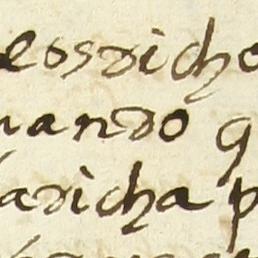 eos dicho
uando q
a dicha p